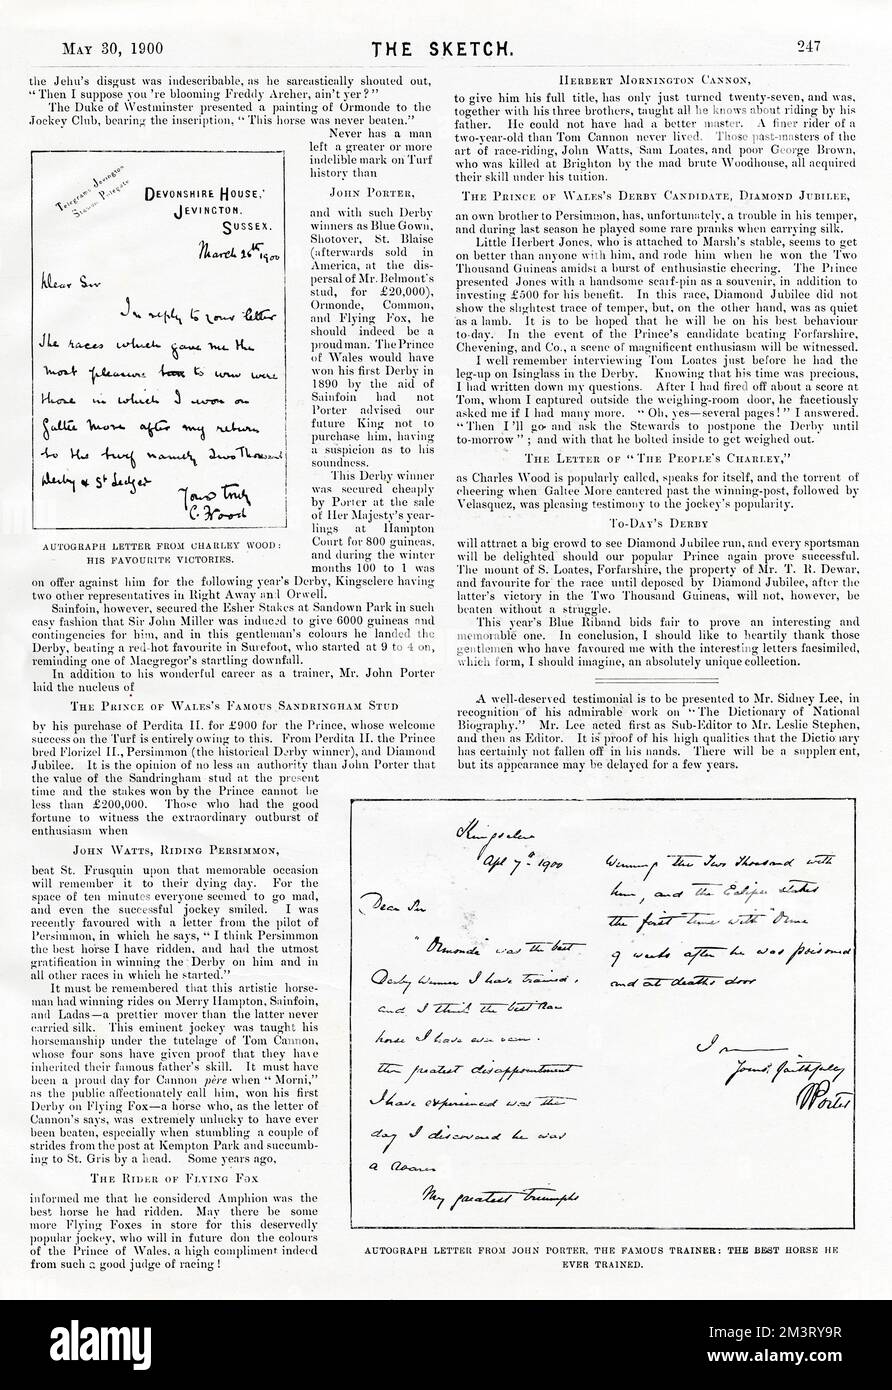 MAY 30, 1900
THE SKETCH.
247
the Jehu's disgust was indescribable, as he sarcastically shouted out,
"Then I suppose you 're blooming Freddy Archer, ain't yer?"
The Duke of Westminster presented a painting of Ormonde to the
Jockey Club, bearing the inscription, "This horse was never beaten."
Never has a man
left a greater or more
indelible mark on Turf
history than
JOHN PORTER,
and with such Derby
winners as Blue Gown,
Shotover, St. Blaise
(afterwards sold in
America, at the dis-
persal of Mr. Belmont's
stud, for £20,000),
Ormonde, Common,
and Flying Fox, he
should indeed be a
proud man. The Prince
of Wales would have
won his first Derby in
1890 by the aid of
Sainfoin had not
Porter advised our
future King not to
purchase him, having
a suspicion as to his
soundness.
This Derby winner
was secured cheaply
by Porter at the sale
of Her Majesty's year-
lings at Hampton
Court for 800 guineas,
and during the winter
months 100 to 1 was
on offer against him for the following year's Derby, Kingsclere having
two other representatives in Right Away and Orwell.
Sainfoin, however, secured the Esher Stakes at Sandown Park in such
easy fashion that Sir John Miller was induced to give 6000 guineas and
contingencies for him, and in this gentleman's colours he landed the
Derby, beating a red-hot favourite in Surefoot, who started at 9 to 4 on,
reminding one of Macgregor's startling downfall.
In addition to his wonderful career as a trainer, Mr. John Porter
laid the nucleus of
THE PRINCE OF WALES'S FAMOUS SANDRINGHAM STUD
by his purchase of Perdita II. for £900 for the Prince, whose welcome
success on the Turf is entirely owing to this. From Perdita II. the Prince
bred Florizel II., Persimmon (the historical Derby winner), and Diamond
Jubilee. It is the opinion of no less an authority than John Porter that
the value of the Sandringham stud at the present
time and the stakes won by the Prince cannot be
less than £200,000. Those who had the good
fortune to witness the extraordinary outburst of
enthusiasm when
JOHN WATTS, RIDING PERSIMMON,
beat St. Frusquin upon that memorable occasion
will remember it to their dying day. For the
space of ten minutes everyone seemed to go mad,
and even the successful jockey smiled. I was
recently favoured with a letter from the pilot of
Persimmon, in which he says, "I think Persimmon
the best horse I have ridden, and had the utmost
gratification in winning the Derby on him and in
all other races in which he started."
It must be remembered that this artistic horse-
man had winning rides on Merry Hampton, Sainfoin,
and Ladas—a prettier mover than the latter never
carried silk. This eminent jockey was taught his
horsemanship under the tutelage of Tom Cannon,
whose four sons have given proof that they have
inherited their famous father's skill. It must have
been a proud day for Cannon père when "Morni,"
as the public affectionately call him, won his first
Derby on Flying Fox—a horse who, as the letter of
Cannon's says, was extremely unlucky to have ever
been beaten, especially when stumbling a couple of
strides from the post at Kempton Park and succumb-
ing to St. Gris by a head. Some years ago,
THE RIDER OF FLYING FOX
informed me that he considered Amphion was the
best horse he had ridden. May there be some
more Flying Foxes in store for this deservedly
popular jockey, who will in future don the colours
of the Prince of Wales, a high compliment indeed
from such a good judge of racing!
Telegrams Jevington
DEVONSHIRE HOUSE,
JEVINGTON.
SUSSEX.
March 26th 1900
Dear Sir
In reply to your letter
the races which gave me the
most pleasure to win were
those in which I won on
Galtee More after my return
to the turf namely Two Thousand
Derby & St Ledger
Yours truly
C. Wood
AUTOGRAPH LETTER FROM CHARLEY WOOD:
HIS FAVOURITE VICTORIES.
HERBERT MORNINGTON CANNON,
to give him his full title, has only just turned twenty-seven, and was,
together with his three brothers, taught all he knows about riding by his
father. He could not have had a better master. A finer rider of a
two-year-old than Tom Cannon never lived. Those past-masters of the
art of race-riding, John Watts, Sam Loates, and poor George Brown,
who was killed at Brighton by the mad brute Woodhouse, all acquired
their skill under his tuition.
THE PRINCE OF WALES'S DERBY CANDIDATE, DIAMOND JUBILEE,
an own brother to Persimmon, has, unfortunately, a trouble in his temper,
and during last season he played some rare pranks when carrying silk.
Little Herbert Jones, who is attached to Marsh's stable, seems to get
on better than anyone with him, and rode him when he won the Two
Thousand Guineas amidst a burst of enthusiastic cheering. The Prince
presented Jones with a handsome scarf-pin as a souvenir, in addition to
investing £500 for his benefit. In this race, Diamond Jubilee did not
show the slightest trace of temper, but, on the other hand, was as quiet
as a lamb. It is to be hoped that he will be on his best behaviour
to-day. In the event of the Prince's candidate beating Forfarshire,
Chevening, and Co., a scene of magnificent enthusiasm will be witnessed.
I well remember interviewing Tom Loates just before he had the
leg-up on Isinglass in the Derby. Knowing that his time was precious,
I had written down my questions. After I had fired off about a score at
Tom, whom I captured outside the weighing-room door, he facetiously
asked me if I had many more. "Oh, yes—several pages!" I answered.
"Then I'll go and ask the Stewards to postpone the Derby until
to-morrow"; and with that he bolted inside to get weighed out.
THE LETTER OF "THE PEOPLE'S CHARLEY,"
as Charles Wood is popularly called, speaks for itself, and the torrent of
cheering when Galtee More cantered past the winning-post, followed by
Velasquez, was pleasing testimony to the jockey's popularity.
TO-DAY'S DERBY
will attract a big crowd to see Diamond Jubilee run, and every sportsman
will be delighted should our popular Prince again prove successful.
The mount of S. Loates, Forfarshire, the property of Mr. T. R. Dewar,
and favourite for the race until deposed by Diamond Jubilee, after the
latter's victory in the Two Thousand Guineas, will not, however, be
beaten without a struggle.
This year's Blue Riband bids fair to prove an interesting and
memorable one. In conclusion, I should like to heartily thank those
gentlemen who have favoured me with the interesting letters facsimiled,
which form, I should imagine, an absolutely unique collection.
A well-deserved testimonial is to be presented to Mr. Sidney Lee, in
recognition of his admirable work on "The Dictionary of National
Biography." Mr. Lee acted first as Sub-Editor to Mr. Leslie Stephen,
and then as Editor. It is proof of his high qualities that the Dictionary
has certainly not fallen off in his hands. There will be a supplement,
but its appearance may be delayed for a few years.
Kingsclere
Apl 7th 1900
Dear Sir
"Ormonde" was the best
Derby winner I have trained,
and I think the best race
horse I have ever seen.
the greatest disappointment
I have experienced was the
day I discovered he was
a Roarer
My greatest triumphs
Winning the Two Thousand with
him, and the Eclipse stakes
the first time with "Orme
9 weeks after he was poisoned
and at deaths door
I am
Yours faithfully
J Porter
AUTOGRAPH LETTER FROM JOHN PORTER, THE FAMOUS TRAINER: THE BEST HORSE HE
EVER TRAINED.
alamy
Image ID: 2M3RY9R
www.alamy.com